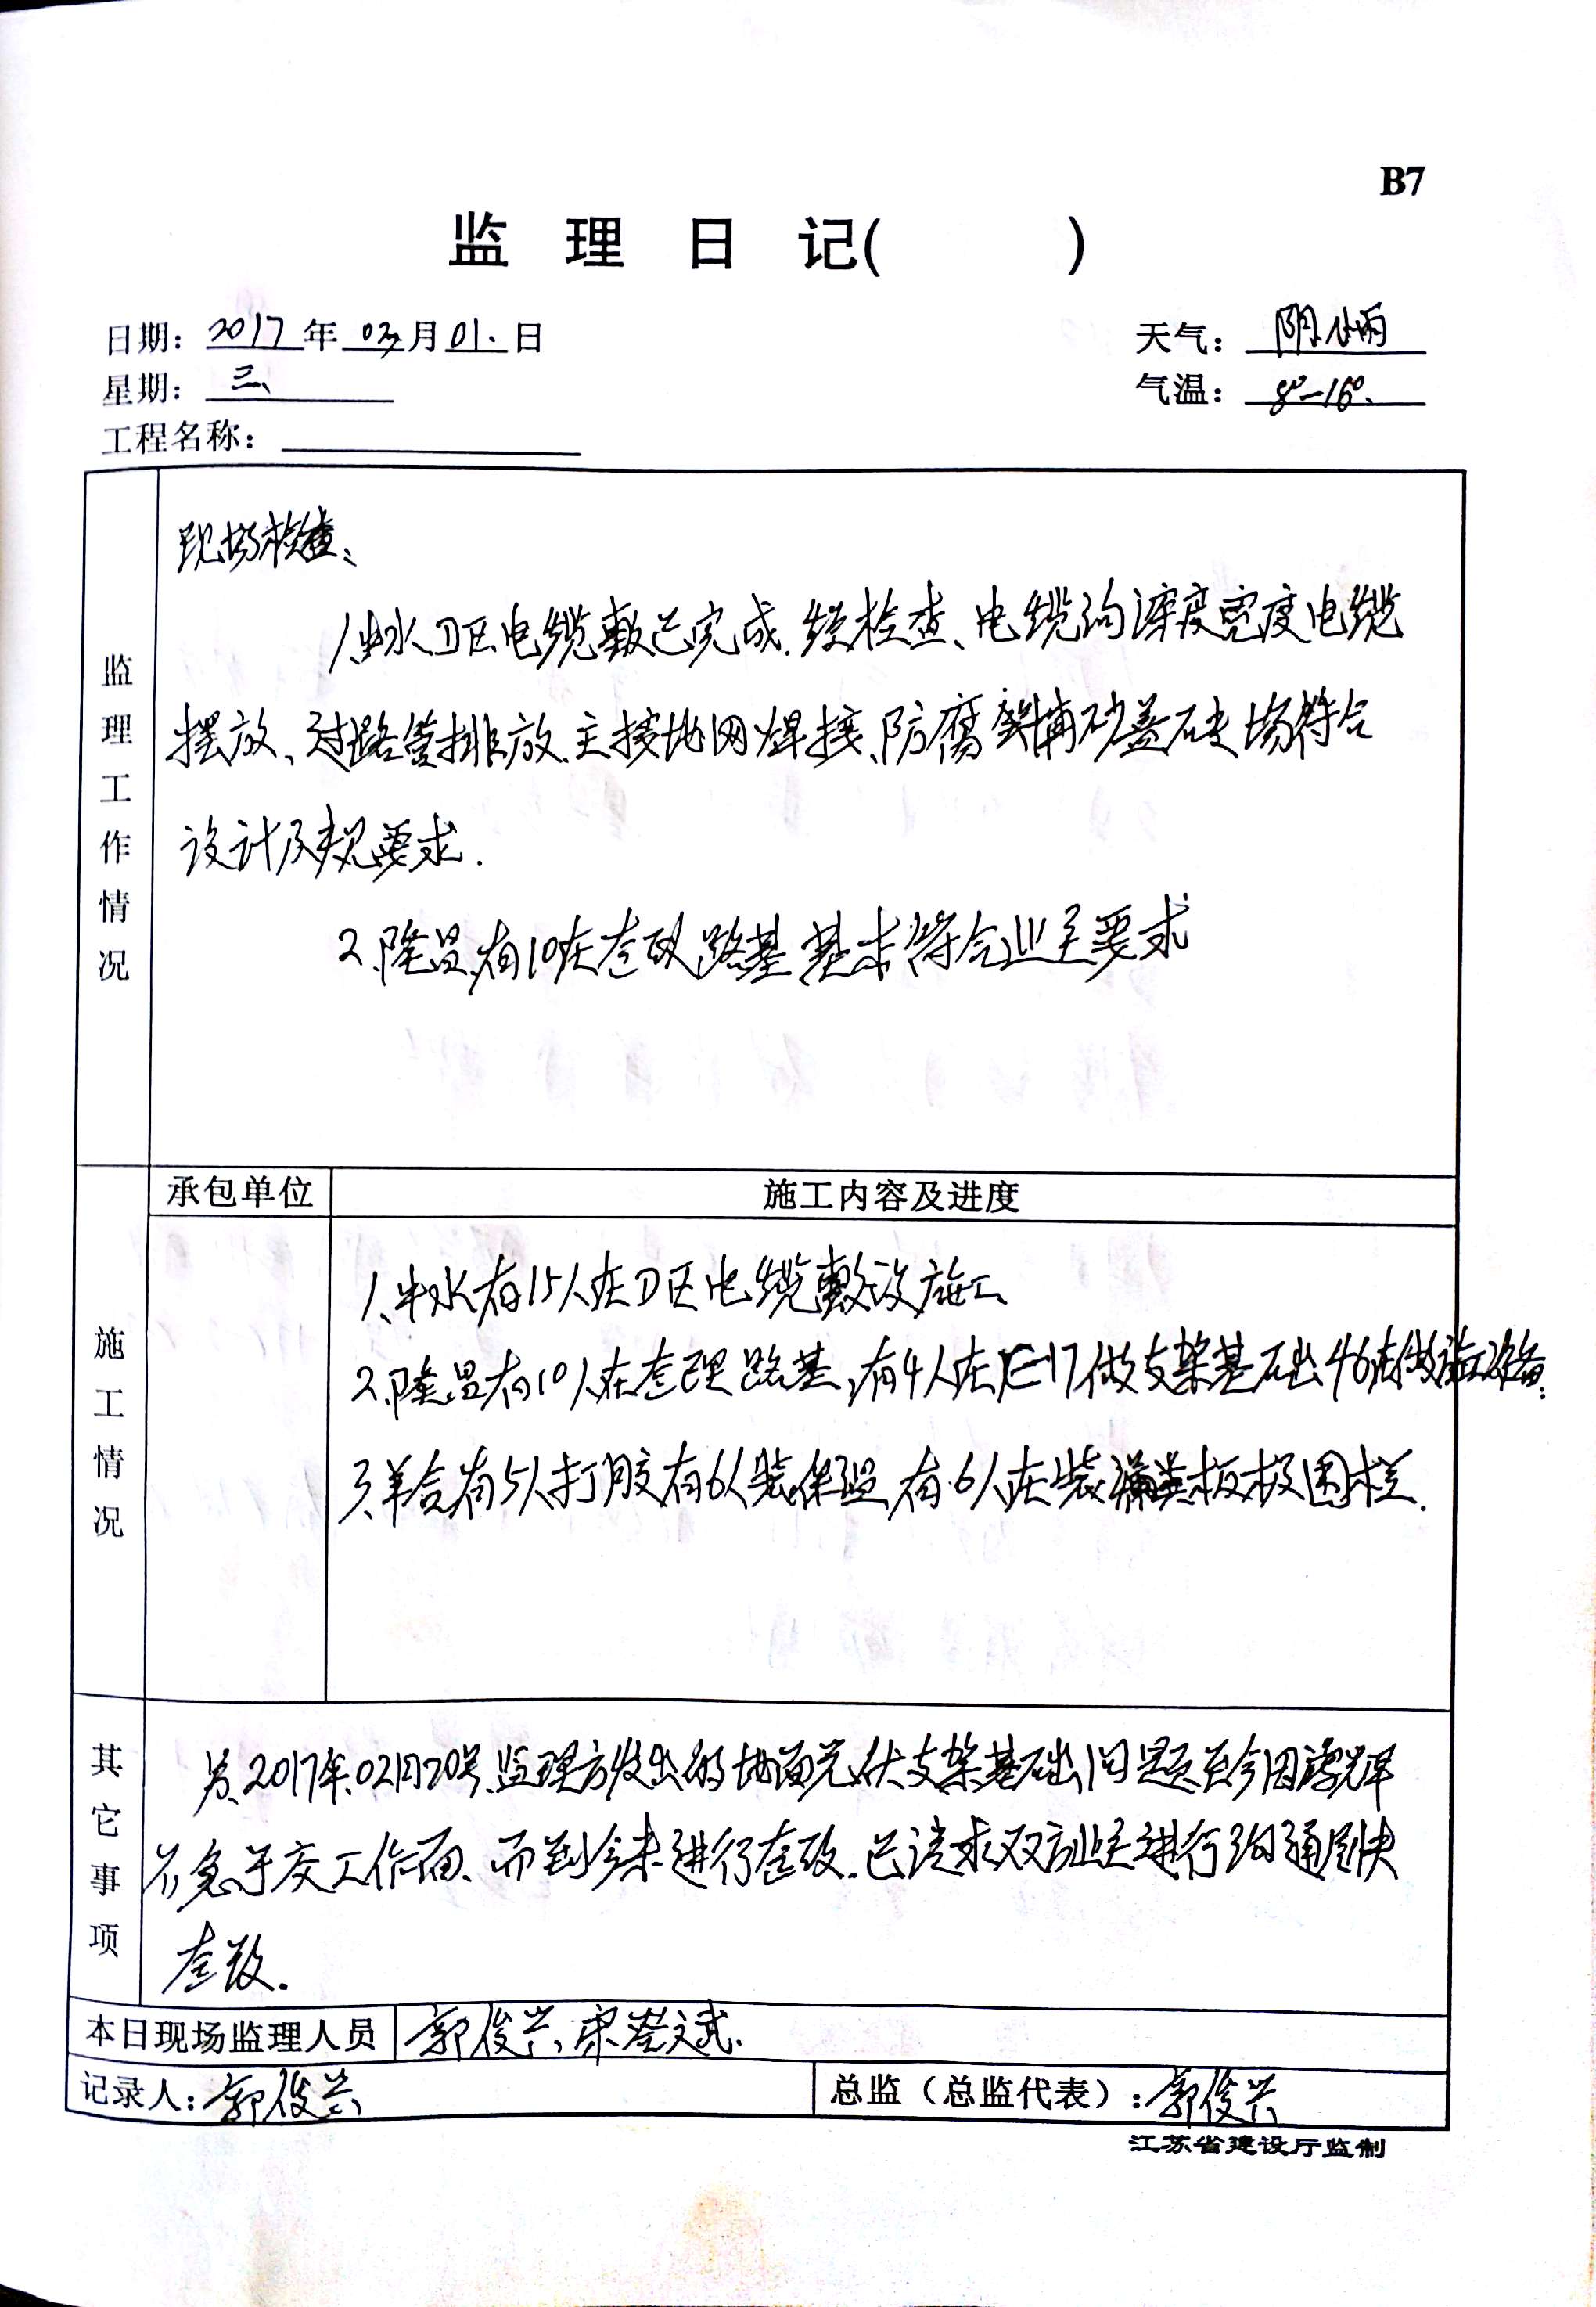 B7
监理日记( )
日期：2017年03月01日
天气：阴小雨
星期：三、
气温：8°-16°.
工程名称：
监理工作情况
现场检查、
1、水D区电缆敷已完成.经检查、电缆沟深度宽度电缆
摆放、过路管排放.主接地网焊接、防腐铺砂盖砖场符合
设计及规要求.
2、隆昌有10在查路基基本符合业主要求
承包单位
施工内容及进度
施工情况
1、水有15人在D区电缆敷设施工
2、隆昌有10人在整理路基,有4人在E-17做支架基础.
3、羊合有5人打胶有6人装保温,有6人在装板围栏.
其它事项
2017年02月20号.监理方发出的地面光伏支架基础问题至今因
不急于交工作面、而到今未进行整改.已请求双方业主进行沟通尽快
整改.
本日现场监理人员
郭俊兴、宋文武.
记录人：郭俊兴
总监（总监代表）：郭俊兴
江苏省建设厅监制